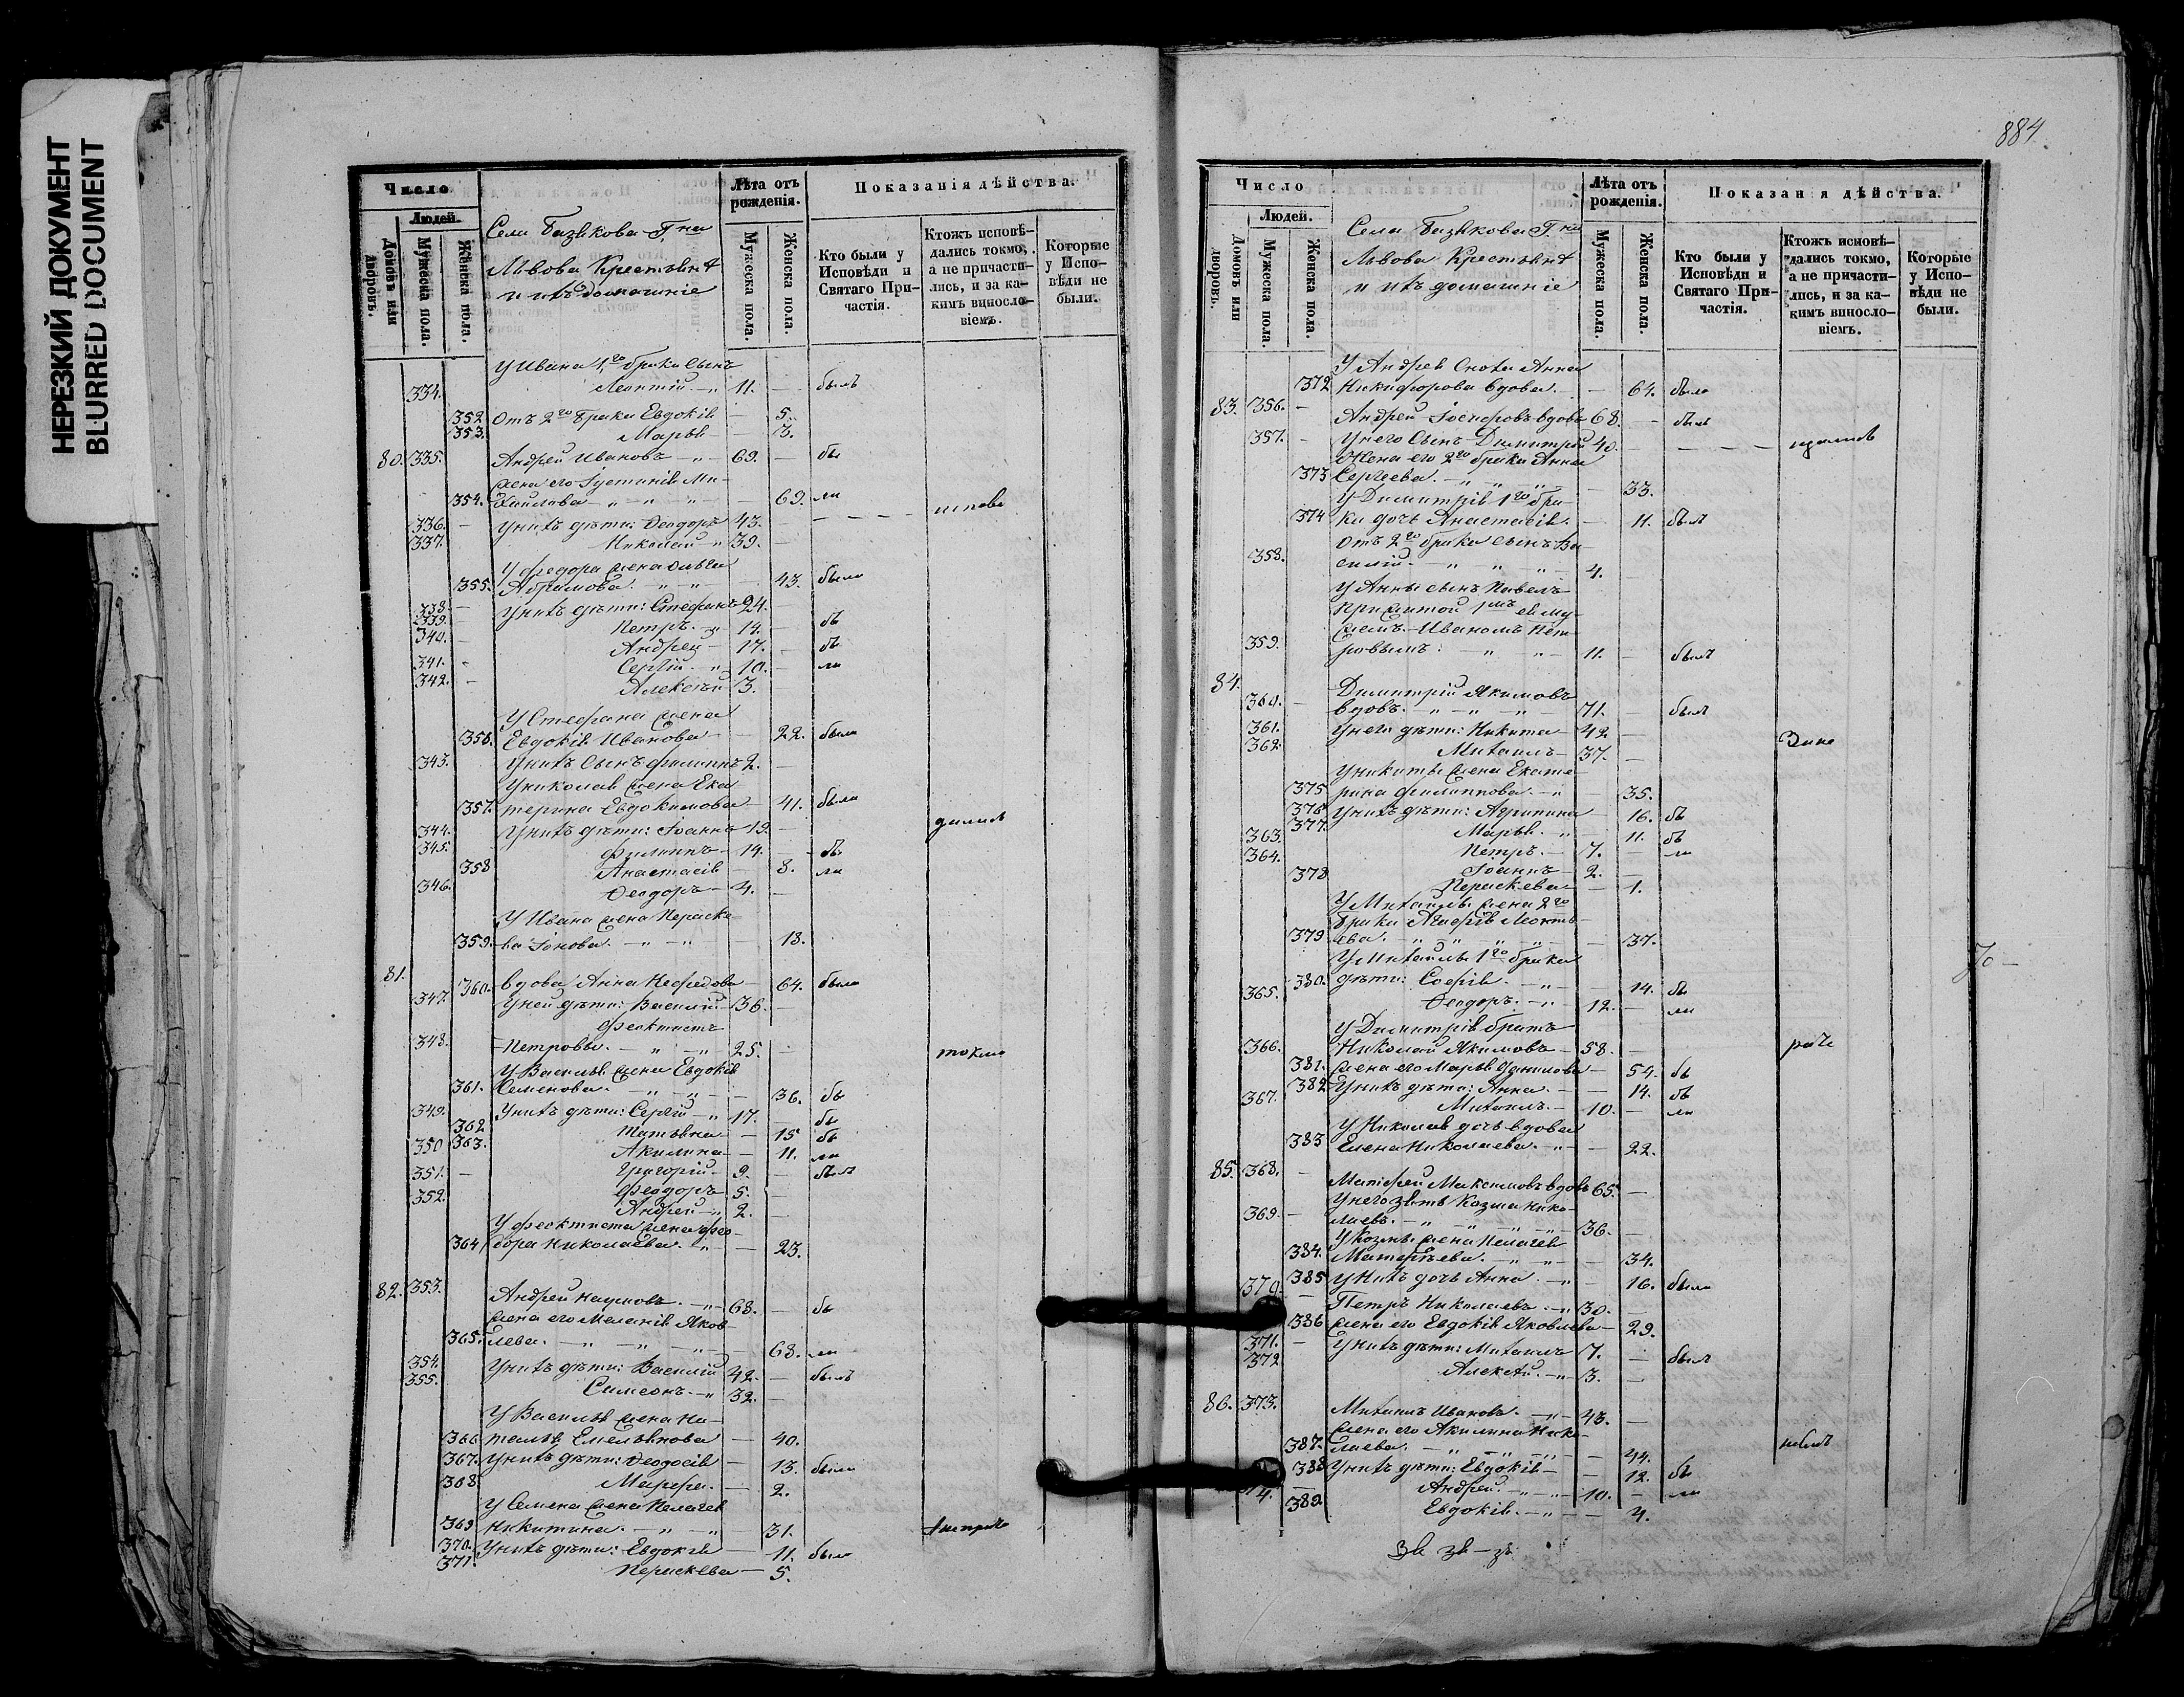 НЕРЕЗКИЙ ДОКУМЕНТ
BLURRED DOCUMENT
Число
Людей.
Домовъ или дворовъ.
Мужеска пола.
Женска пола.
Села Базыкова Г.на
Львова Крестьянѣ
и ихъ домашніе
Лѣта отъ рожденія.
Мужеска пола.
Женска пола.
Показанія дѣйства.
Кто были у Исповѣди и Святаго Причастія.
Ктожъ исповѣдались токмо, а не причастились, и за какимъ винословіемъ.
Которые у Исповѣди не были.
У Ивана 1го брака сынъ
334. Леонтій 11. — былъ
352 Отъ 2го брака Евдокія — 5.
353. Марья — 3.
80. 335. Андрей Ивановъ 69. — бы
жена его Іустинія Ми-
354. хайлова — 69. ли
336. — У нихъ дѣти: Ѳеодоръ 43. —
337. Николай 39. —
У Федора жена Ольга
355. Абрамова — 43. была
338. — У нихъ дѣти: Стефанъ 24. —
339. — Петръ 14. — бы
340. — Андрей 17. — бы
341. Сергій 10. — ли
342. — Алексѣй 3.
У Стефана жена
356. Евдокія Иванова — 22. была
343. У нихъ сынъ Филиппъ 2. —
У Николая жена Ека
357. терина Евдокимова — 41. была
344. У нихъ дѣти: Іоаннъ 19. —
345. Филиппъ 14. — бы
358 Анастасія — 8. ли
346. Ѳеодоръ 4. —
У Ивана жена Параске
359. ва Іонова — 18.
81. 360. вдова Анна Нефедова — 64. была
347. У ней дѣти: Василій 36. —
Феоктистъ
348. Петровы 25. — токмо
У Василья жена Евдокія
361. Семенова — 36. бы
349. У нихъ дѣти: Сергій 17. — бы
362 Татьяна — 15 бы
350 363. Акилина — 11. ли
351. — Григорій 9. — былъ
352. Феодоръ 5. —
Андрей 2. —
У Феоктиста жена Фео-
364 дора Николаева — 23.
82. 353. Андрей Наумовъ 68. — бы
жена его Меланія Яков
365. лева — 68. ли
354. У нихъ дѣти: Василій 42. — былъ
355. Симеонъ 32. —
У Василья жена На-
366 талья Емельянова — 40.
367. У нихъ дѣти: Ѳеодосія — 13. была
368 Марфа — 2.
У Семена жена Пелагея
369 Никитина — 31.
370. У нихъ дѣти: Евдокія — 11. была
371. Параскева — 5.
884
Число
Людей.
Домовъ или дворовъ.
Мужеска пола.
Женска пола.
Села Базыкова Г.на
Львова Крестьянѣ
и ихъ домашніе
Лѣта отъ рожденія.
Мужеска пола.
Женска пола.
Показан я дѣйства.
Кто были у Исповѣди и Святаго Причастія.
Ктожъ исповѣдались токмо, а не причастились, и за какимъ винословіемъ.
Которые у Исповѣди не были.
У Андрея Сноха Анна
372 Никифорова вдова — 64. была
83. 356. — Андрей Іосифовъ вдовъ 68. — былъ
357. — У него сынъ Димитрій 40. —
Жена его 2го брака Анна
373 Сергеева — 33.
У Димитрія 1го бра-
374 ка дочь Анастасія — 11. была
Отъ 2го брака сынъ Ва
358. силій 4. —
У Анны сынъ Павелъ
прижитой 1мъ ея му
жемъ Иваномъ Пет-
359. ровымъ 11. — былъ
84. 360. — Димитрій Якимовъ
вдовъ 71. — былъ
361. У него дѣти: Никита 42 —
362. Михаилъ 37. —
У Никиты жена Екате-
375 рина Филиппова — 35.
376 У нихъ дѣти: Агрипина — 16. бы
377. Марья — 11. бы
363. Петръ 7. — ли
364. Іоаннъ 2. —
378 Параскева — 1.
У Михаилы жена 2го
брака Агафія Леонть-
379 ева — 37.
У Михаилы 1го брака
380. дѣти: Софія — 14. бы
365. Ѳеодоръ 12. — ли
У Димитрія братъ
366. Николай Якимовъ 58. —
381. жена его Марья Данилова — 54. бы
382 У нихъ дѣти: Анна — 14. бы
367. Михаилъ 10. — ли
У Николая дочь вдова
383 Елена Николаева — 22.
85. 368. — Матфей Максимовъ вдовъ 65. —
У него зять Козма Нико-
369. — лаевъ 36. —
У Козмы жена Пелагея
384. Матфѣева — 34.
385 У нихъ дочь Анна — 16. была
370. — Петръ Николаевъ 30. —
386 жена его Евдокія Яковлева — 29.
371. — У нихъ дѣти: Михаилъ 7. — былъ
372 Алексѣй 3. —
86. 373. Михаилъ Ивановъ 43. —
жена его Акилина Нико-
387. лаева — 44.
388 У нихъ дѣти: Евдокія — 12. бы
4. — Андрей 10. — ли
389. Евдокія — 4.